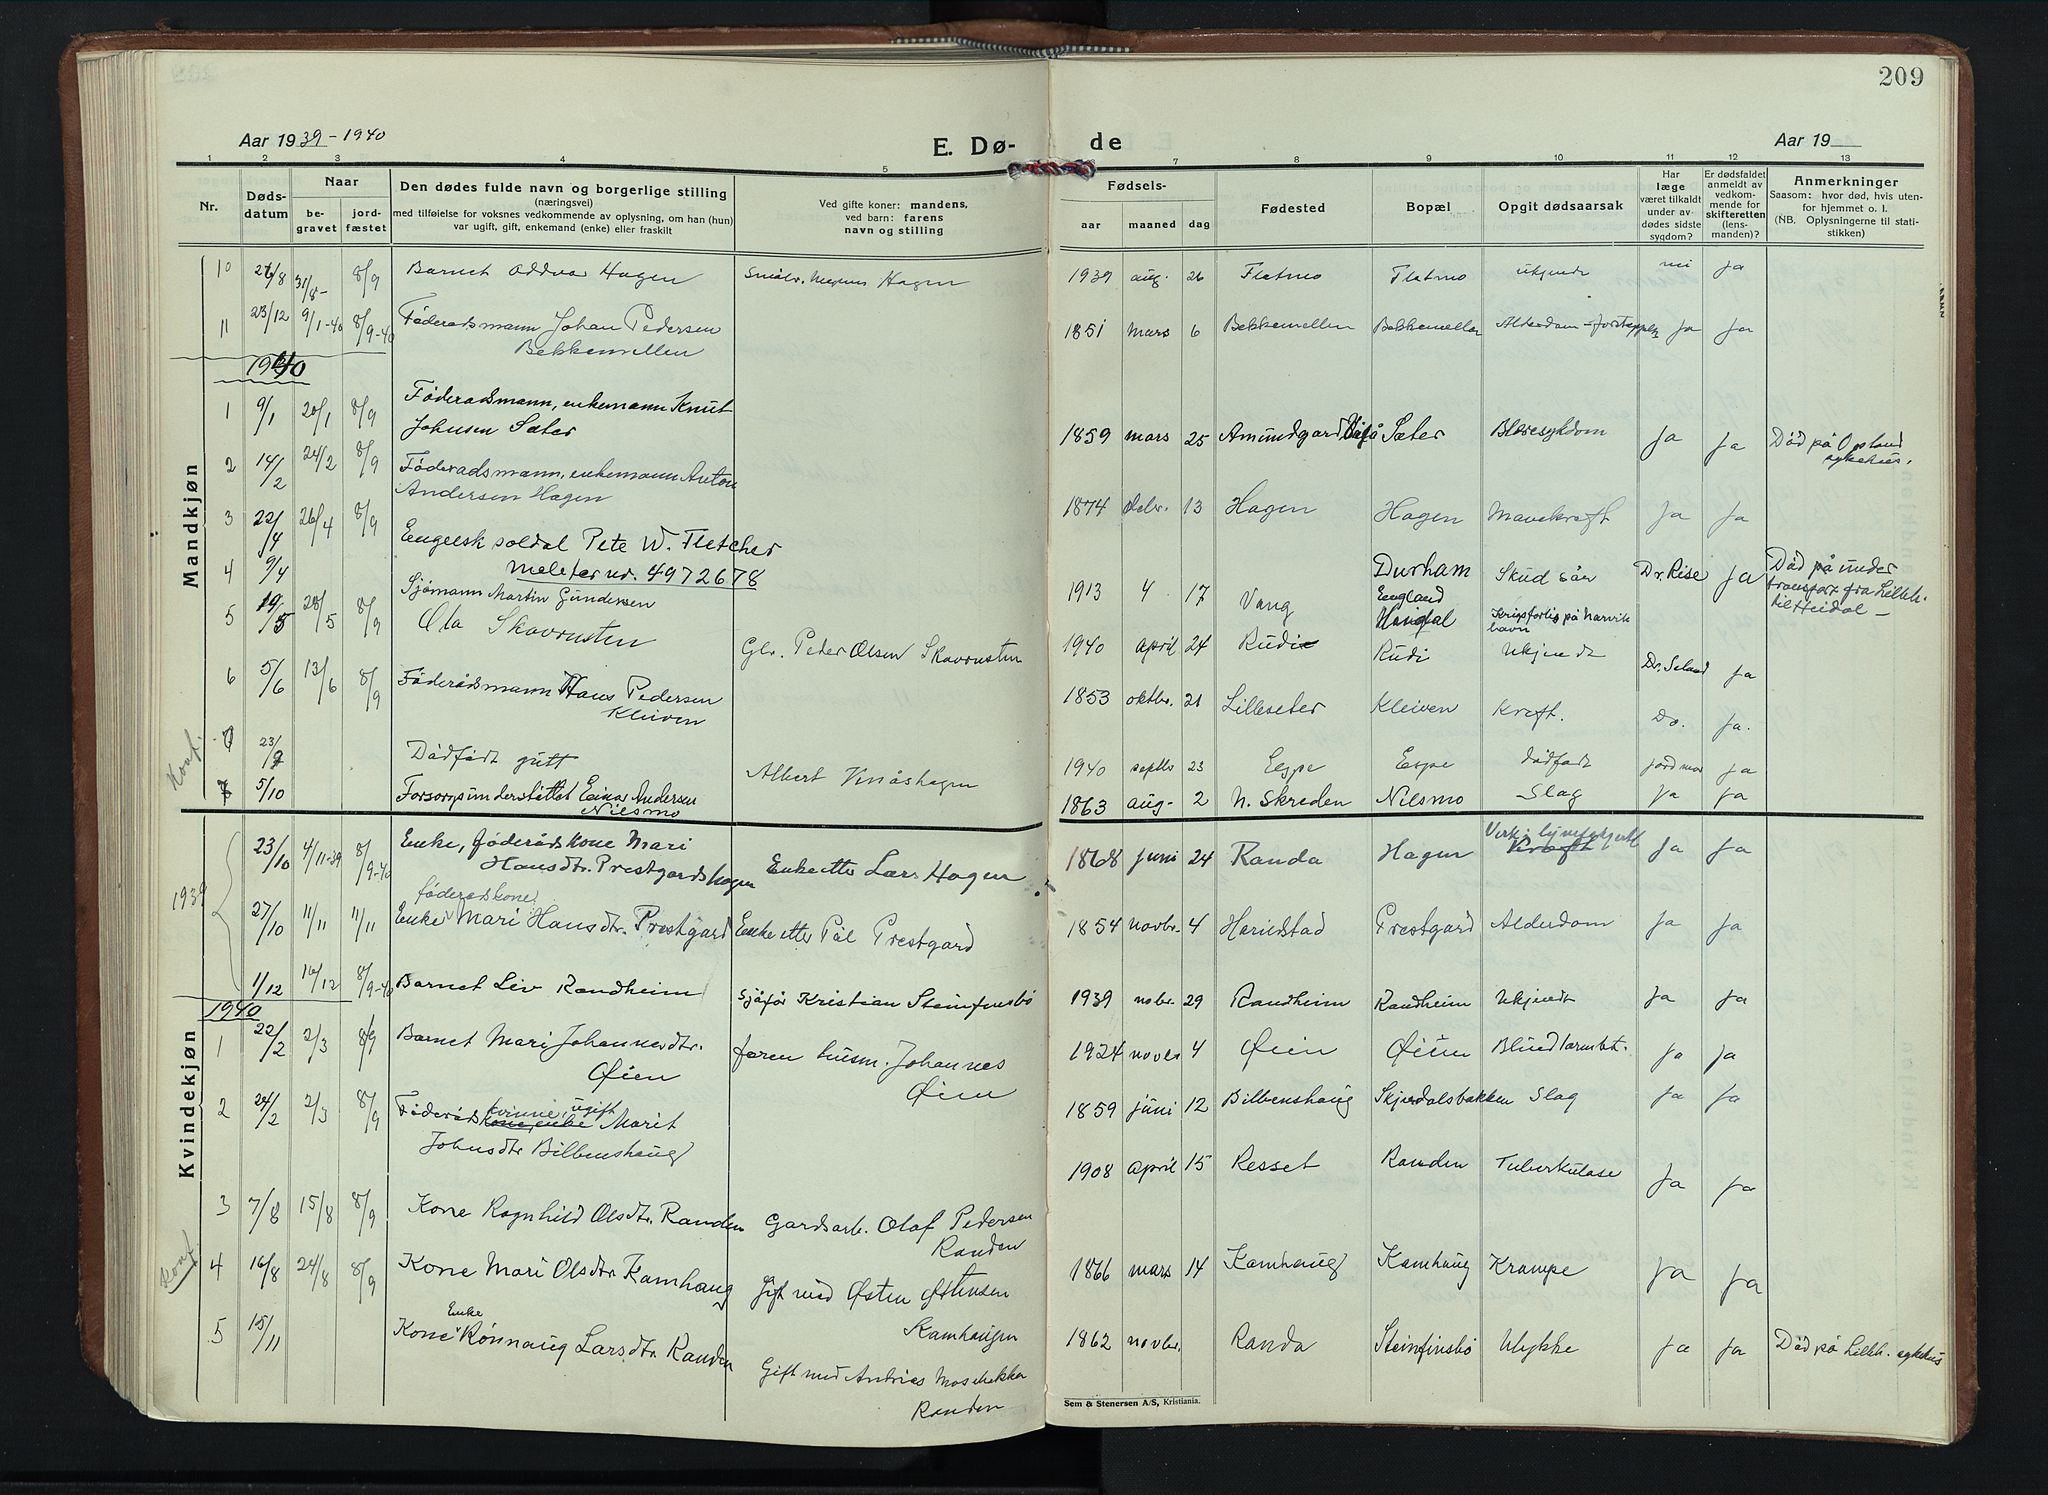 209
Aar 1939-1940
E. Dø-
de
Aar 19
1 2 3 4 5 7 8 9 10 11 12 13
Nr.
Døds-
datum
Naar
be-
gravet
jord-
fæstet
Den dødes fulde navn og borgerlige stilling
(næringsvei)
med tilføielse for voksnes vedkommende av oplysning, om han (hun)
var ugift, gift, enkemand (enke) eller fraskilt
Ved gifte koner: mandens,
ved barn: farens
navn og stilling
Fødsels-
aar maaned dag
Fødested
Bopæl
Opgit dødsaarsak
Har
læge
været tilkaldt
under av-
dødes sidste
sygdom?
Er dødsfaldet
anmeldt av
vedkom-
mende for
skifteretten
(lens-
manden)?
Anmerkninger
Saasom: hvor død, hvis uten-
for hjemmet o. l.
(NB. Oplysningerne til stati-
stikken)
Mandkjøn
10 26/8 31/8- 8/9 Barnet Oddvar Hagen Magnus Hagen 1939 aug. 26 Flatmo Flatmo ukjendt nei ja
11 23/12 9/1-40 8/9-40 Føderadsmann Johan Pedersen
Bekkemellen 1851 mars 6 Bekkemellen Bekkemellen Alderdom - ja ja
1940
1 9/1 20/1 8/9 Føderadsmann, enkemann Knut
Johnsen Sæter 1859 mars 25 Amundgard Vågå Sæter Blæresykdom ja ja Död på Opland
sykehus.
2 14/2 24/2 8/9 Føderadsmann, enkemann Anton
Andersen Hagen 1874 febr. 13 Hagen Hagen Mavekreft ja ja
3 22/4 26/4 8/9 Engelsk soldat Pete W. Fletcher
nr. 4972678 Durham
England Skudsår Dr. Rise ja Död på under
transport fra Lillh.
til Heidal -
4 9/4 Sjømann Martin Gundersen 1913 4 17 Vang Heidal Krigsforlis på Narvik
havn
5 19/5 28/5 8/9 Ola Skavrusten Gbr. Peder Olsen Skavrusten 1940 april 24 Rudi Rudi Ukjendt Dr. Seland ja
6 5/6 13/6 8/9 Føderådsmann Hans Pedersen
Kleiven 1853 oktbr. 21 Lilleseter Kleiven Kreft. Do. ja.
Konf.
23/9 Dödfödt gutt Albert Vinåshagen 1940 septbr 23 Espe Espe dödfödt jordmor ja
7 5/10 Forsorgsunderstöttet Einar Andersen
Nilsmo 1863 aug- 2 N. Skreden Nilsmo Slag ja ja
Kvindekjøn
1939
23/10 4/11-39 8/9-40 Enke, føderådskone Mari
Hansdtr. Prestgardshagen Enke etter Lars Hagen 1868 juni 24 Randa Hagen ja ja
27/10 11/11 11/11 føderadskone
Enke Mari Hansdtr. Prestgard Enke etter Pål Prestgard 1854 novbr. 4 Harildstad Prestgard Alderdom ja ja
1/12 16/12 8/9-40 Barnet Liv Randheim Sjåfør Kristian Steinfinsbö 1939 nobr. 29 Randheim Randheim Ukjendt ja ja
1940
1 22/2 2/3 8/9 Barnet Mari Johannesdtr.
Øien faren husm. Johannes
Øien 1924 novbr 4 Øien Øien Blindtarmbet. ja ja
2 24/2 2/3 8/9 Føderåds kvinne, ugift
kone, enke Marit
Johnsdtr Bilbenshaug 1859 juni 12 Bilbenshaug Skjerdalsbakken Slag ja ja
3 7/8 15/8 8/9 Kone Ragnhild Olsdtr. Randen Gardsarb. Olaf Pedersen
Randen 1908 april 15 Resset Randen Tuberkulose ja ja
Konf
4 16/8 24/8 8/9 Kone Mari Olsdtr Kamhaug Gift med Østen Østensen
Kamhaugen 1866 mars 14 Kamhaug Kamhaug Krampe ja ja
5 15/11 Enke
Kone Rønnaug Larsdtr Randen Gift med Andreas
Randen 1862 novbr. Randa Steinfinsbö Ulykke ja ja Död på Lillh. sykehus
Sem & Stenersen A/S, Kristiania.